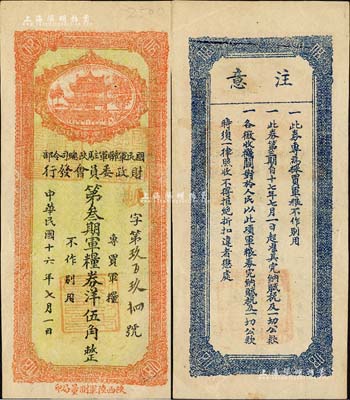 國民軍聯軍駐陝總司令部
財政委員會發行
字第玖百玖拾肆號
第叁期軍糧券洋伍角整
專買軍糧
不作別用
中華民國十六年七月一日
陝西陸軍測量局印
注意
一此券專為採買軍糧不作別用
一此券第叁期自十七年七月一日起准其完納賦稅及一切公款
一各徵收機關對於人民以此項軍糧券完納賦稅及一切公款
時須一律照收不得拒絕折扣違者懲處